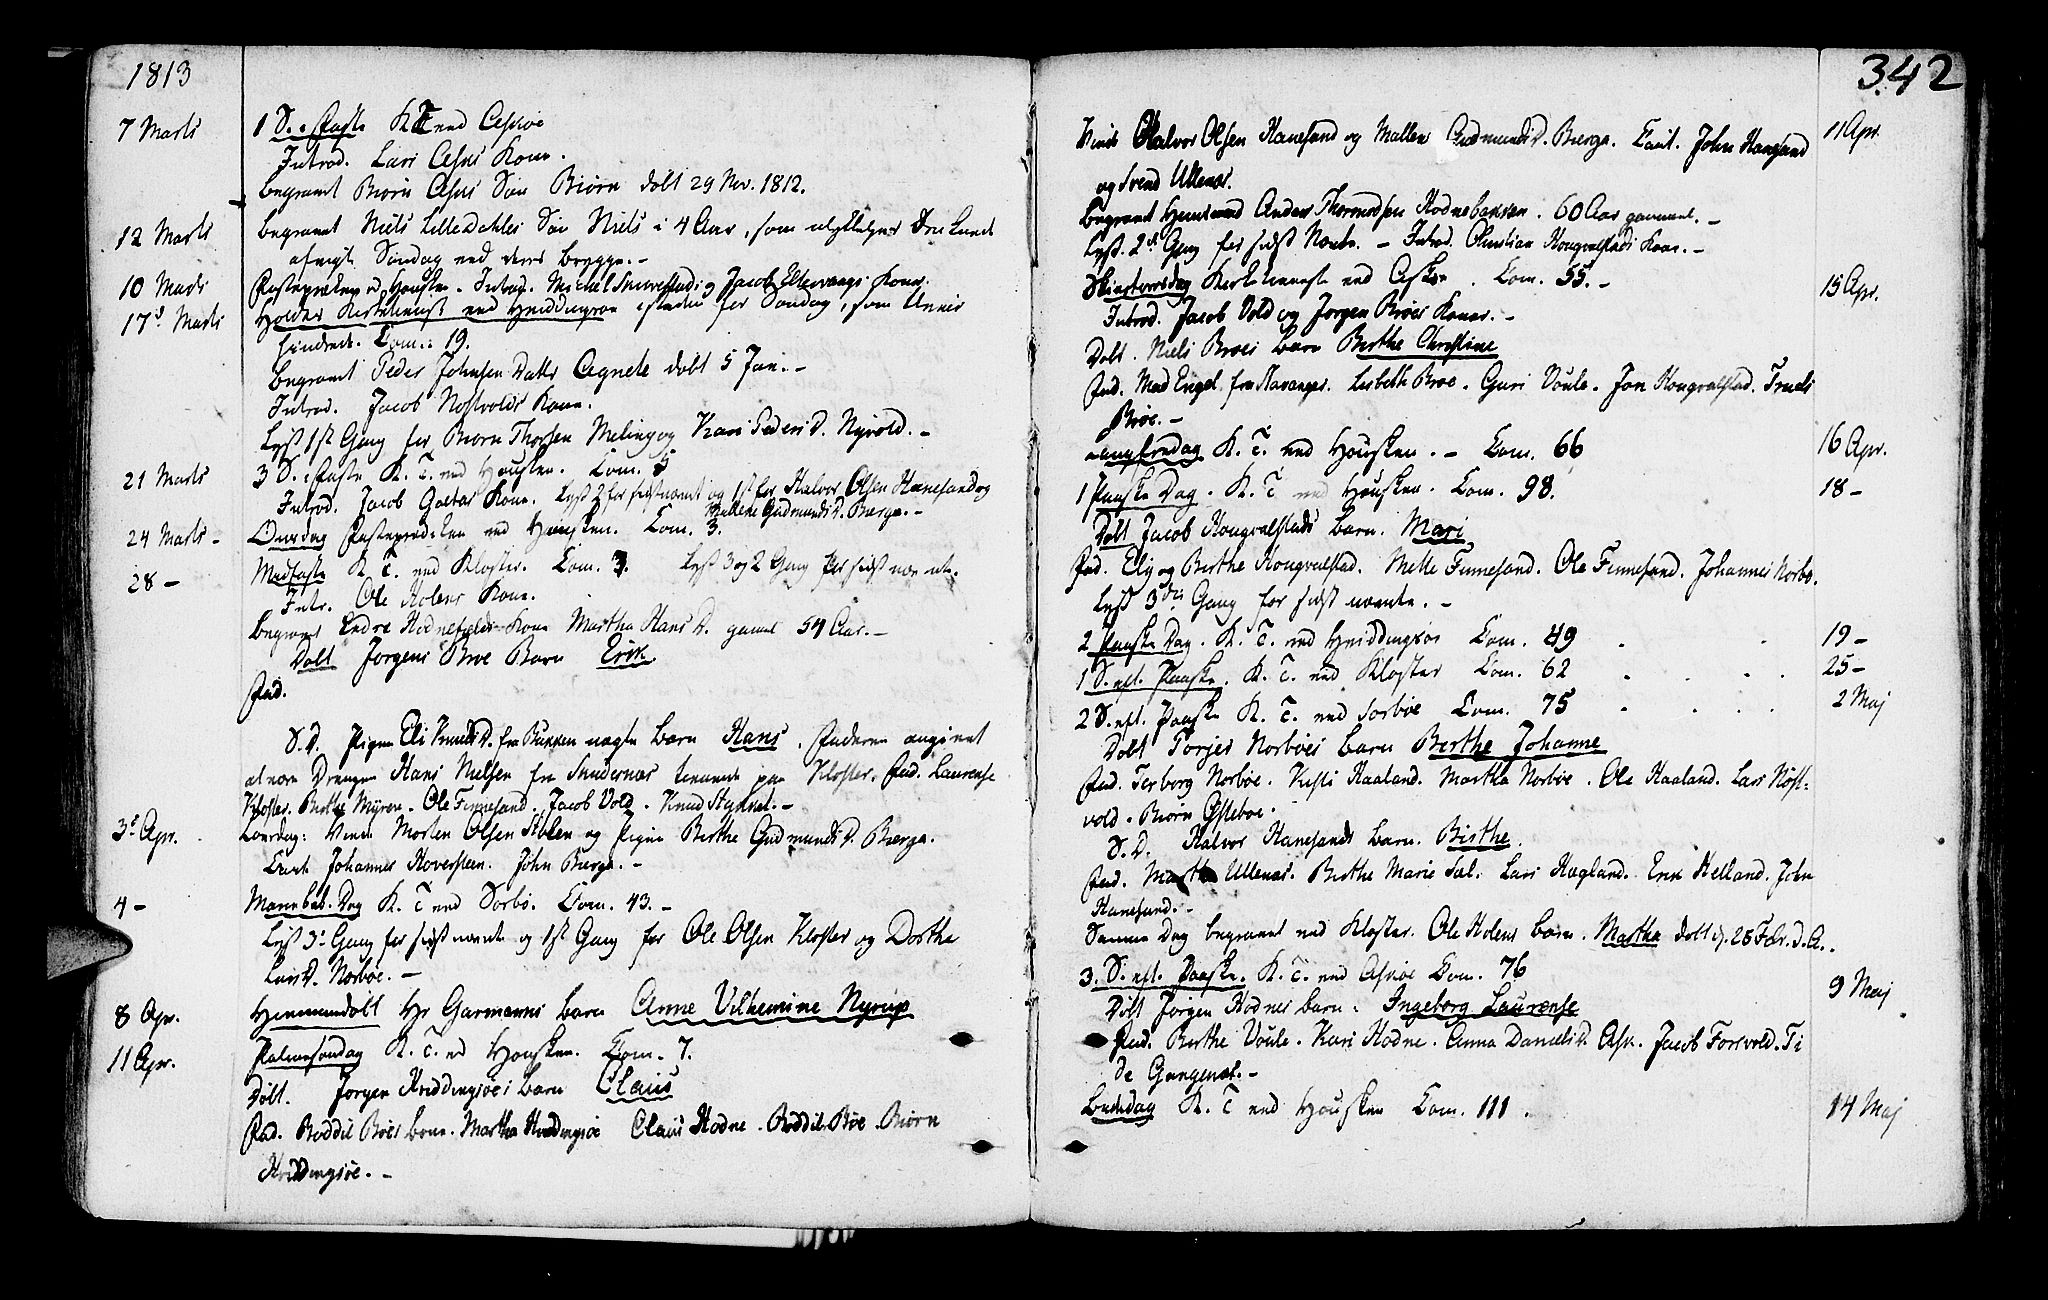 1813
7 Marts 1 S. i Faste K T ved Askøe
Introd. Lars Askes Kone.
begravet Biørn Askes Søn Biørn døbt 29 Nov. 1812.
12 Marts begravet Niels Lille Dahles Søn Niels i 4 Aar, som
afvigte Søndag ved deres Brygge. -
10 Marts Fasteprædiken v Housken. Introd. Michel og Jacob Eltervaags Koner.
17d Marts Holdes Kirketieneste ved Hviddingsøe istedet for Søndag, som Uveir
hindrede. Com: 19.
begravet Peder Johnsen Datter Agnete døbt 5 Jan. -
Introd. Jacob Nostvolds Kone.
Lyst 1st Gang for Biørn Thorsen Meling og Kari Peders D. Nyvold. -
21 Marts 3 S. i Faste K. T. ved Housken. Com. 5
Introd. Jacob Kone. Lyst 2 for sidstnævnte og 1st for Halvor Olsen Hanesand og
Mallene Gudmunds D. Berge. -
24 Marts - Onsdag Fasteprædiken ved Housken. Com. 3.
28 - Midfaste K T. ved Kloster. Com. 3. Lyst 3 og 2 Gang for sidst nævnte.
Intr. Ole Holens Kone.
begravet Endre Hodnefields Kone Martha Hans D. gamel 54 Aar. -
Døbt Jørgens Broe Barn Erik
Fad.
S. D. Pigen Eli Knuds D. fra Bakken uægte Barn Hans. Faderen angivet
at være Drengen Hans Nielsen fra tienende paa Kloster. Fad. Laurense
Kloster. Berthe Myren. Ole Finnesand. Jacob Vold. Knud
3d Apr. Løverdag: Viede Morten Olsen og Pigen Berthe Gudmunds D. Berge.
Caut. Johannes Hoversteen. John Berge. -
4 - Mariæ beb. Dag K. T ved Sørbø. Com. 43. -
Lyst 3d Gang for sidst nævnte og 1st Gang for Ole Olsen Kloster og Dorthe
Lars D. Norbøe. -
8 Apr. Hiemmedøbt Hr Garmanns Barn Anne Vilhemine Nyrup
11 Apr. Palmesøndag K. T. ved Housken. Com. 7.
Døbt. Jørgen Hviddingsøes Barn Claus
Fad. Boddil Bøes Martha Hviddingsøe Claus Hodne. Boddil Bøe. Biørn
Hviddingsøe. -
342
Viede Halvor Olsen Hanesand og Mallene Gudmunds D. Berge. Caut. John Hanesand 11 Apr.
og Svend Ullenes.
Begravet Huusmand Anders Thormodsen Hodnebakken. 60 Aar gammel. -
Lyst. 2d Gang for sidst Nævnte. - Introd. Christian Hougvalstads Kone. -
Skiertorsdag Kirketieneste ved Askøe. Com. 55. - 15 Apr.
Introd. Jacob Vold og Jørgen Broes Koner. -
Døbt. Niels Broes Barn Berthe Christine
Fad. Mad Engel fra Stavanger. Lisbeth Broe. Guri Voule. Jon Hougvalstad. Truels
Broe. -
Langfredag K. T. ved Housken. - Com. 66 16 Apr.
1 Paaske Dag. K. T ved Housken. Com. 98. 18 -
Døbt Jacob Hougvalstads Barn. Mari
Fad. Eli og Berthe Hougvalstad. Mette Finnesand. Ole Finnesand. Johannes Norbø.
Lyst 3die Gang for sidst nævnte. -
2 Paaske Dag. K. T. ved Hviddingsøe Com. 49 19 -
1 S. eft. Paaske. K. T. ved Kloster Com. 62 25 -
2 S. eft. Paaske K. T. ved Sørbøe Com. 75 2 Maj
Døbt Torjes Norbøes Barn Berthe Johanne
Fad. Torborg Norbøe. Kisti Haaland. Martha Norbøe. Ole Haaland. Lars Nøst-
vold. Biørn Østebøe.
S. D. Halvor Hanesands Barn. Birthe.
Fad. Martha Ullenes. Berthe Marie Sæl. Lars Hegland. Erik Helland. John
Hanesand. -
Samme Dag begravet ved Kloster. Ole Holens Barn. Martha døbt d. 28 Febr. d. A.
3. S. eft. Paaske. K. T. ved Askøe Com. 76 9 Maj
Døbt Jørgen Hodnes Barn: Ingeborg Laurense
Fad. Berthe Voule. Kari Hodne. Anna Daniels D. Ask. Jacob Forsvold. Ti
de Gangenæs. -
Bededag K. T ved Housken Com. 111. 14 Maj